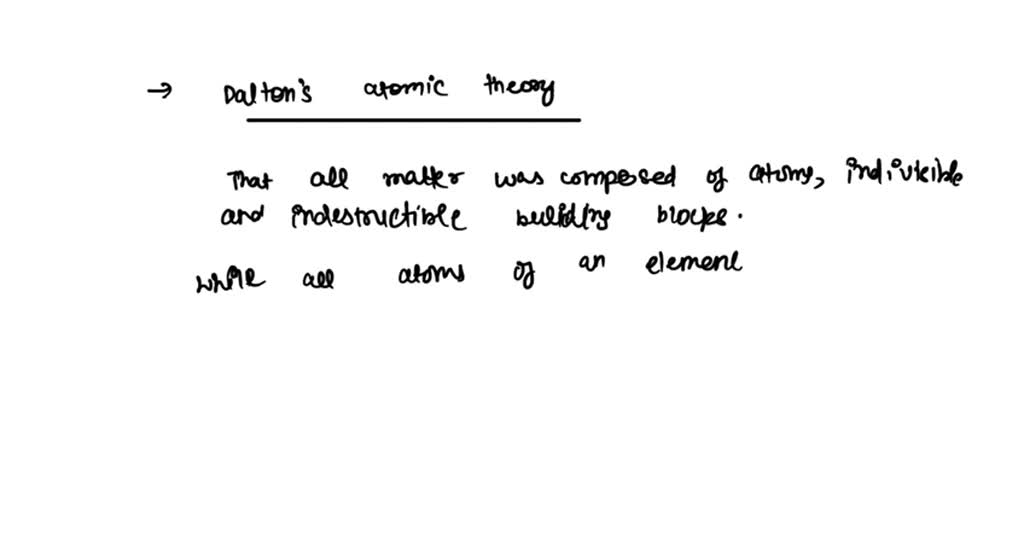 → Dalton's atomic theory
That all matter was composed of atoms, indivisible
and indestructible building blocks.
while all atoms of an element